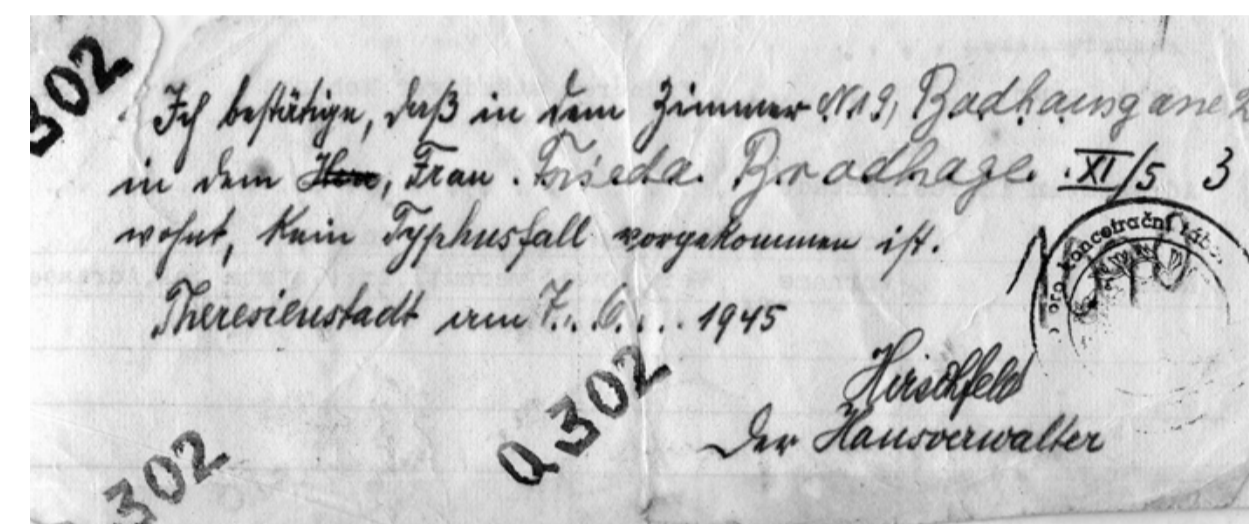 302
Ich bestätige, daß in dem Zimmer N 19, Badhausgasse 2
in dem Herr, Frau. Frieda. Brodhage. XI/5 3
wohnt, kein Typhusfall vorgekommen ist.
Theresienstadt am 7. 6. 1945
koncetrační
Hirschfeld
Der Hausverwalter
Q 302
302